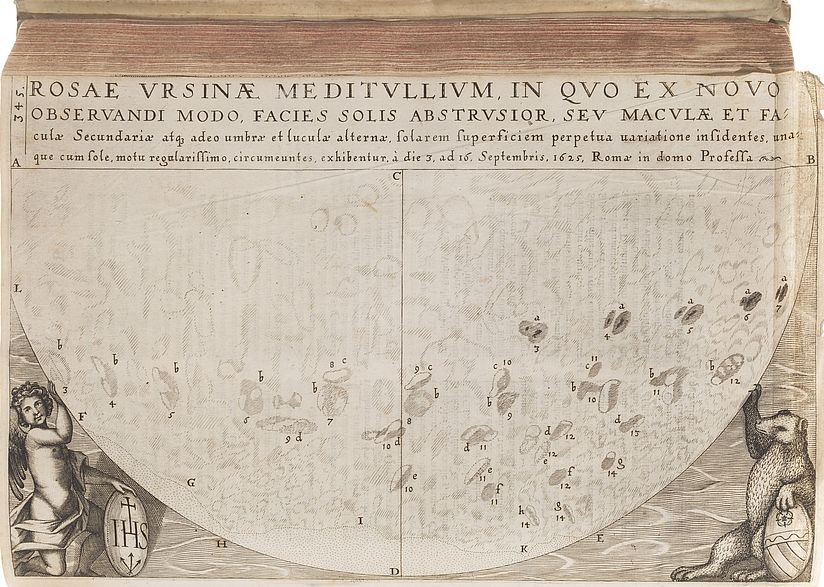 345.
ROSAE VRSINÆ MEDITVLLIVM, IN QVO EX NOVO
OBSERVANDI MODO, FACIES SOLIS ABSTRVSIOR, SEV MACVLÆ ET FA-
culæ Secundariæ atq, adeo umbræ et luculæ alternæ, solarem superficiem perpetua uariatione insidentes, una-
que cum sole, motu regularissimo, circumeuntes, exhibentur, à die 3, ad 16, Septembris, 1625, Romæ in domo Professa
A B
C
L
a a a a a
3 4 5 6 7
b b b b b b b b b b
3 4 5 6 7 8 9 10 11 12
c c c c
8 9 10 11
d d d d d
9 10 11 12 13
e e e
10 11 12
f f
11 12
g g
14 14
h
14
F
G
H
I
K
E
D
IHS